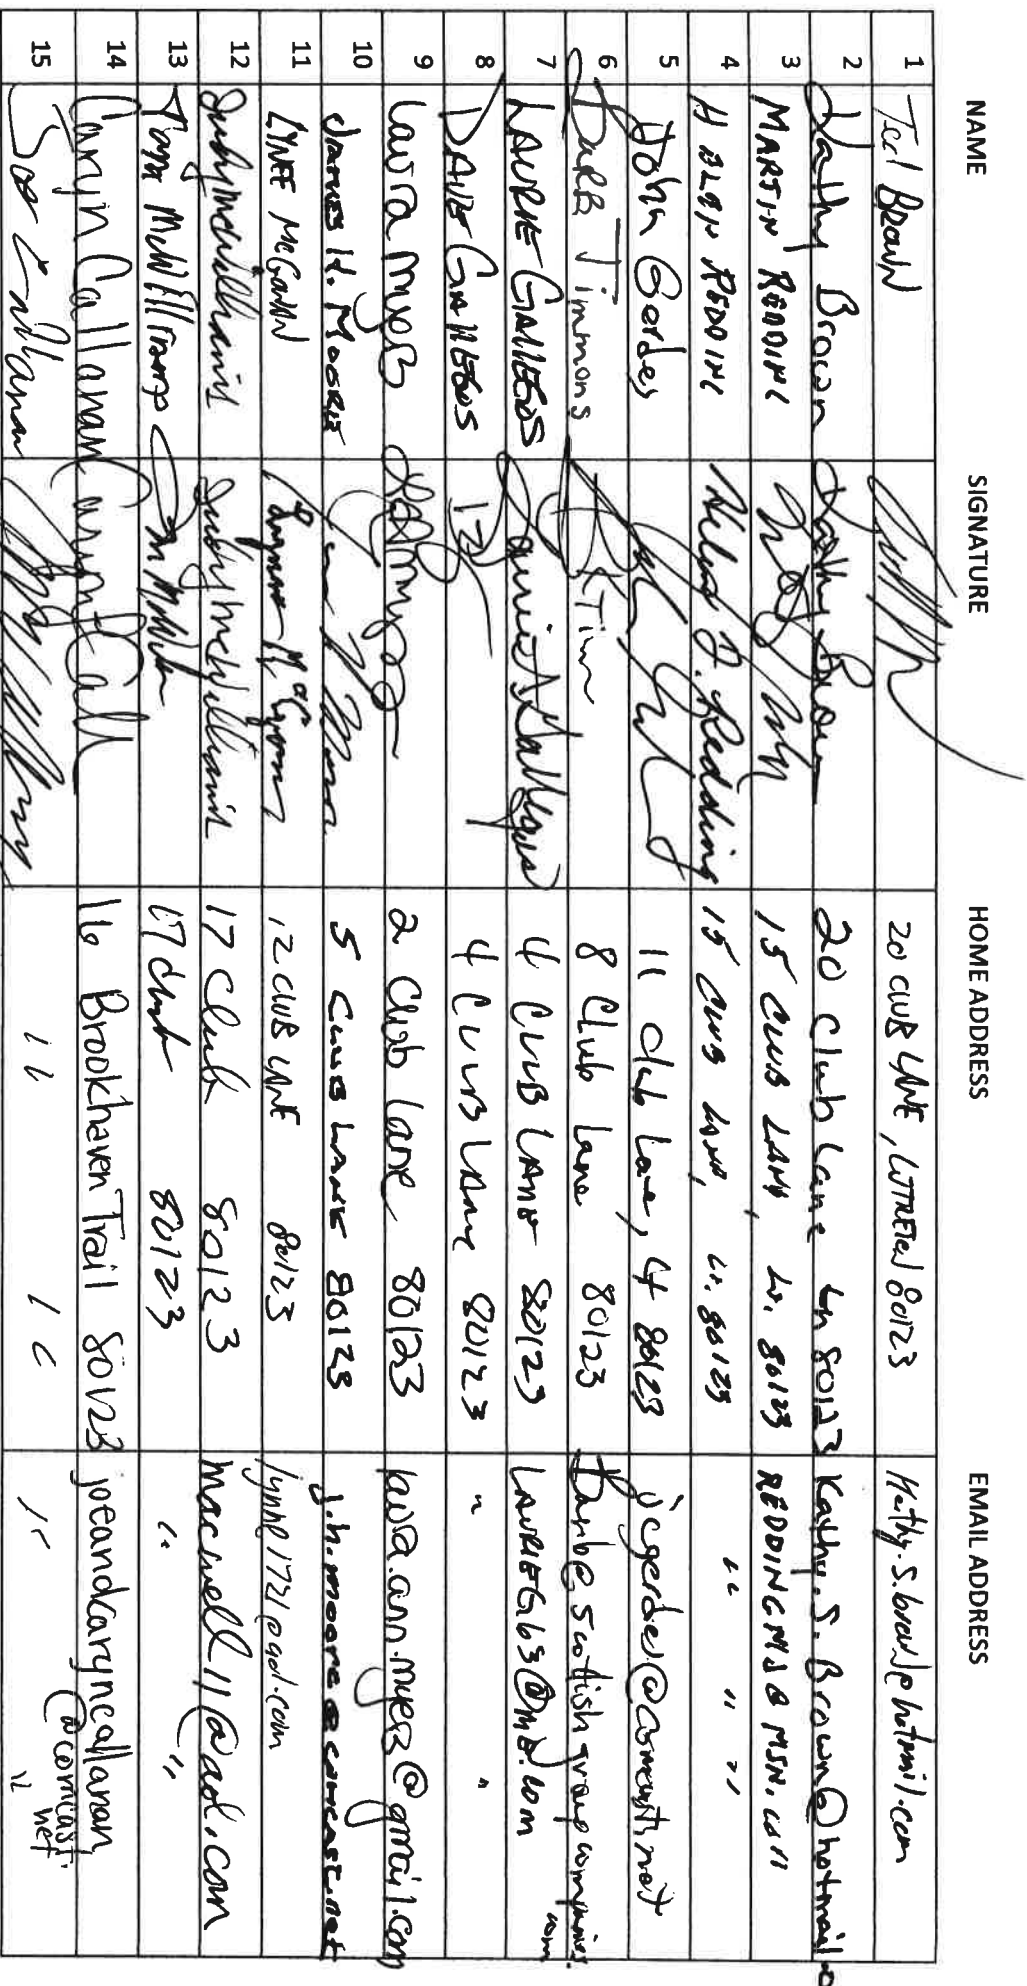 NAME SIGNATURE HOME ADDRESS EMAIL ADDRESS
1 Ted Brown 20 CLUB LANE, LITTLETON 80123 Kathy.S.brown@hotmail.com
2 Kathy Brown Kathy Brown 20 Club Lane Ln 80123 Kathy.S.Brown@hotmail.c
3 MARTIN REDDING 15 CLUB LANE, Lt. 80123 REDDINGMJ@MSN.COM
4 HELEN REDDING Helen J. Redding 15 CLUB LANE, Lt. 80123 " " "
5 John Gerdes 11 Club Lane, 4 80123 jcgerdes@comcast.net
6 BARB Timmons 8 Club Lane 80123 barb@scottishgroupcompanies.com
7 LAURIE GALLEGOS Laurie A Gallegos 4 CLUB LANE 80123 LAURIEG63@ME.COM
8 DAVE GALLEGOS 4 CLUB LANE 80123 " "
9 Laura Myers 2 Club Lane 80123 laura.ann.myers@gmail.com
10 James H. Moore 5 CLUB LANE 80123 j.h.moore@comcast.net
11 LYNNE McGOWN Lynne McGown 12 CLUB LANE 80123 lynne1721@aol.com
12 Judy McWilliams Judy McWilliams 17 Club 80123 macwell11@aol.com
13 Tom McWilliams 17 Club 80123 " "
14 Caryn Callanan Caryn Call 16 Brookhaven Trail 80123 joeandcaryncallanan@comcast.net
15 Joe Callanan " " " "